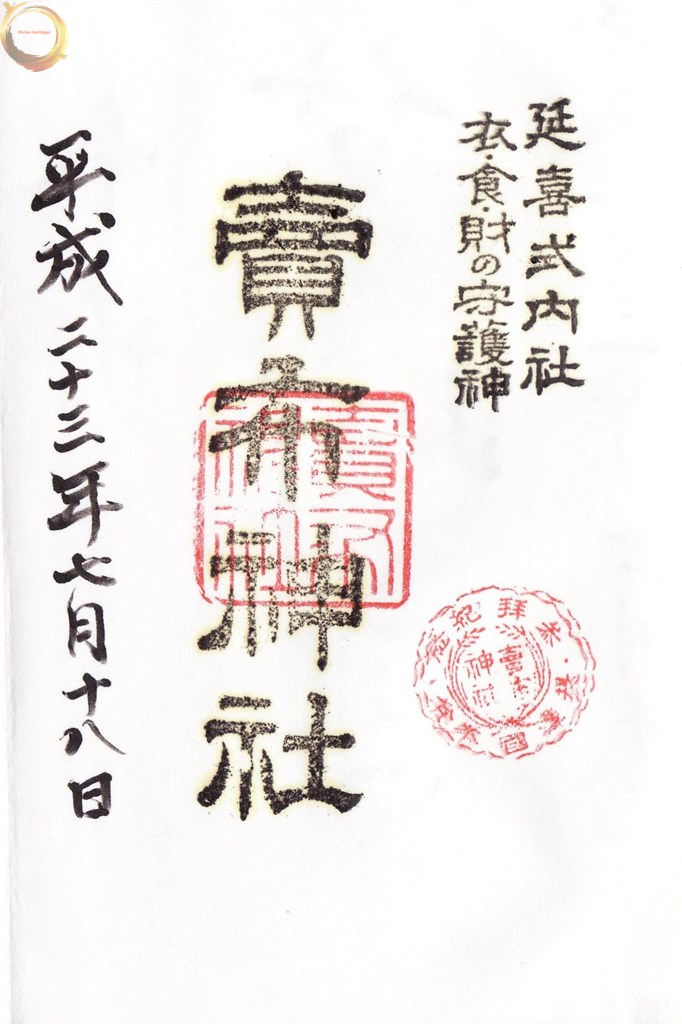 延喜式内社
衣・食・財の守護神
賣布神社
平成二十三年七月十八日
賣布
神社